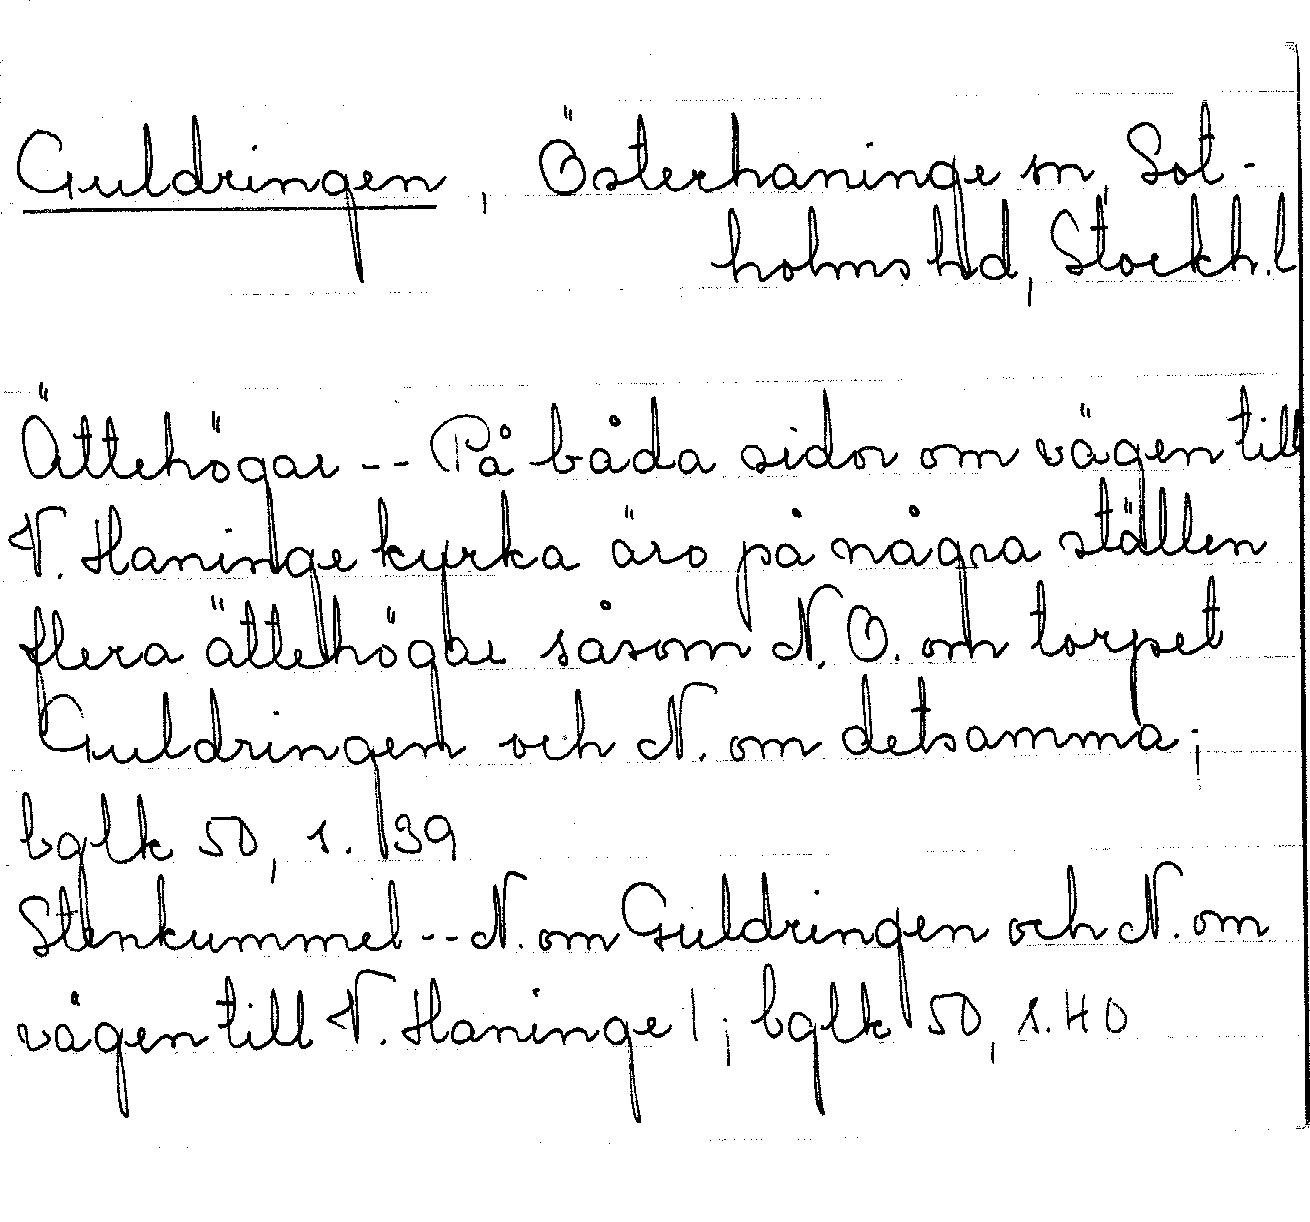 Guldringen, Österhaninge sn, Sot-
holms hd, Stockh. l
Ättehögar -- På båda sidor om vägen till
V. Haninge kyrka äro på några ställen
flera ättehögar såsom N.O. om torpet
Guldringen och N. om detsamma;
bglk 50, s. 139
Stenkummel -- N. om Guldringen och N. om
vägen till V. Haninge |; bglk 50, s. 40